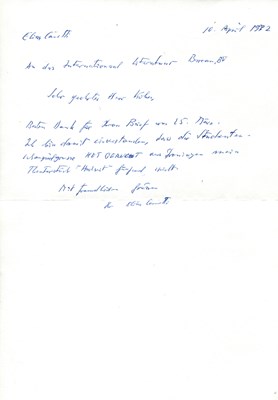 Elias Canetti 16. April 1982
An das Internationaal Literatuur Bureau, BV
Sehr geehrter Herr
Besten Dank für Ihren Brief vom 25. März.
Ich bin damit einverstanden, dass die Studenten-
HET GEWEST aus mein
Theaterstück "Hochzeit" spielt.
Mit freundlichen Grüssen
Ihr Elias Canetti